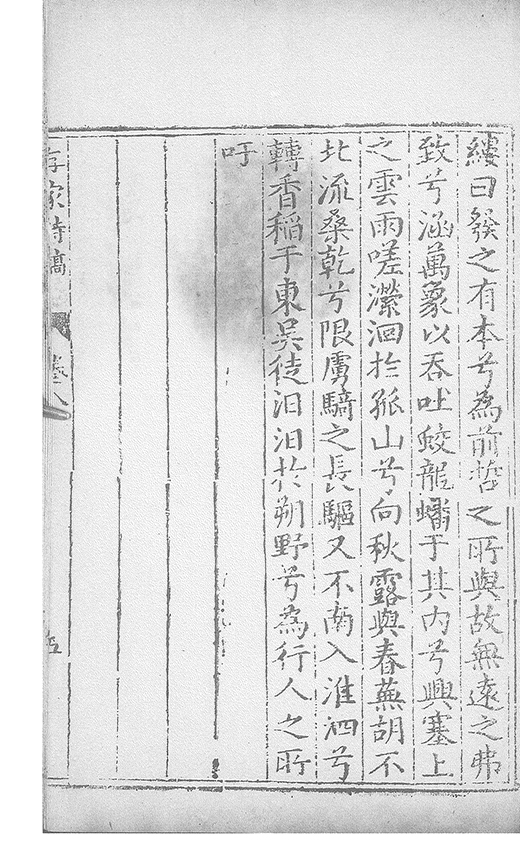 縷曰發之有本兮為前哲之所與故無遠之弗
致兮涵萬象以吞吐蛟龍蟠于其内兮興塞上
之雲雨嗟瀠洄扵孤山兮向秋露與春蕪胡不
北流桑乾兮限虜騎之長驅又不南入淮泗兮
轉香稲于東吳徒汩汩扵朔野兮為行人之所
吁
家詩稿
五